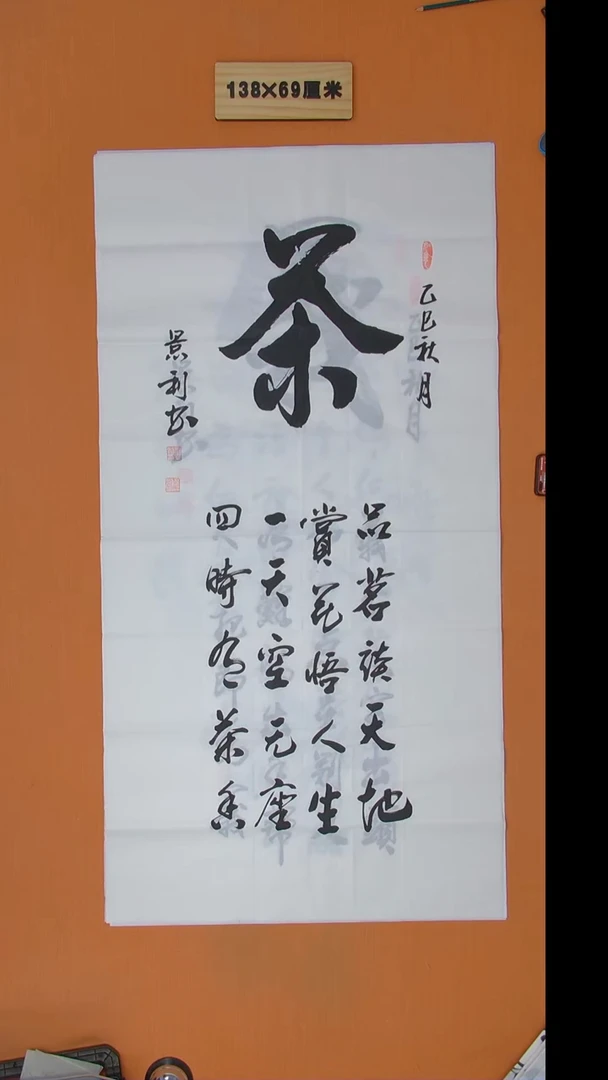 138×69厘米
茶
乙巳秋月
品茗談天地
賞花悟人生
一天空无座
四時有茶香
景利书